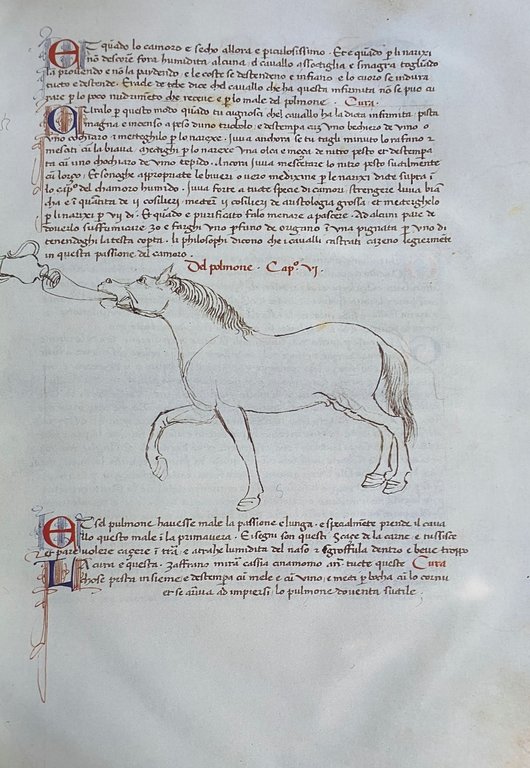 Et quādo lo camoro e secho allora e piculosissimo · Et e quādo p li narixi
nō descore fora humidita alcuna · el cavallo assotiglia e smagra togliādo
la provendo e nō la paydendo · e le coste se destendeno e infiano · e lo cuoro se indura
tuto e destende · Emcle de tebe dice chel cavallo che ha questa infirmita nō se puo cu
rare p lo poco nudrimēto che receve e p lo male del polmone · Cura ·
Aiutalo p questo modo quādo tu cugnosci chel cavallo ha la dicta infirmita · pista
magna e incenso a peso duno e destempa cū uno bechero de vino o
uno e metteghilo p lo narixe · Iuva anchora se tu tagli minuto lo rafano e
mesceti cū la biava · metteghi p lo narexe Una olca e meça de nitro pesto et destempa
ta cū uno chochiaro de vino tepido · Ancora Iuva mescetare lo nitro pesto sutilmente
cū lorço · Et sonoghe appropriate le bivere o vero medixine p le narixi dicte supra ī
lo cap° del chamoro humido · Iuva forte a tute specie di camori strengere luvia biā
cha e ī quantita de ii cosilieri meterli ii cosilieri de aristologia grossa et meterghelo
p li narixi p vii di · Et quādo e purificato falo menare a pascere · Ad alcuni pare de
doverlo suffumicare 30 e farghi uno p̱fumo de origino ī una pignata p uno di
tenendoghi la testa coperta · li philosophi dicono che i cavalli castrati cazeno legiermete
in questa passione del camoro ·
Del polmone · Cap° VI ·
Et sel pulmone havesse male la passione e lunga · e specialmēte prende il cava
llo questo male ī la primavera · E i segni son questi · scaçe de la carne e tussisce
et pare volere caçere ī trā · e atrahe lumidita del naso e sgroffula dentro e beve troppo
La cura e questa · zaffrano mira cassia cinamomo an̄ · tucte queste Cura
chose pista insieme e destempa cū mele e cū vino e meti p bocha cū lo cornu
et se aiuva ad impiersi lo pulmone doventa sutile ·